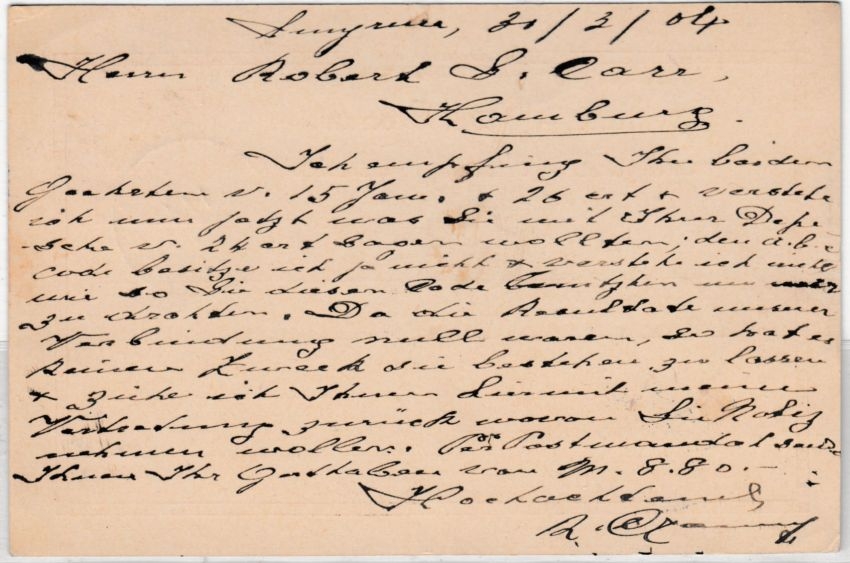 Smyrna, 31/3/04
Herrn Robert S. Carr,
Hamburg.
Ich empfing Ihre beiden
Geehrten v. 15 Jan. & 26 crt & verstehe
ich nun jetzt was Sie mit Ihrer Depe
-sche v. 24 crt sagen wollten; den a.b.c
code besitze ich ja nicht & verstehe ich nicht
wie so Sie diesen Code benutzten um mir
zu drahten. Da die Resultate unserer
Verbindung null waren, so hat es
keinen Zweck die bestehen zu lassen
& ziehe ich Ihnen hiermit meine
Vertretung zurück wovon Sie Notiz
nehmen wollen. Per Postmandat sende
Ihnen Ihr Guthaben von M. 8.80.-
Hochachtend